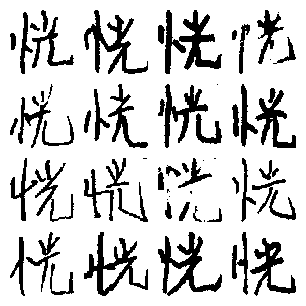 恍恍恍恍
恍恍恍恍
恍恍恍恍
恍恍恍恍